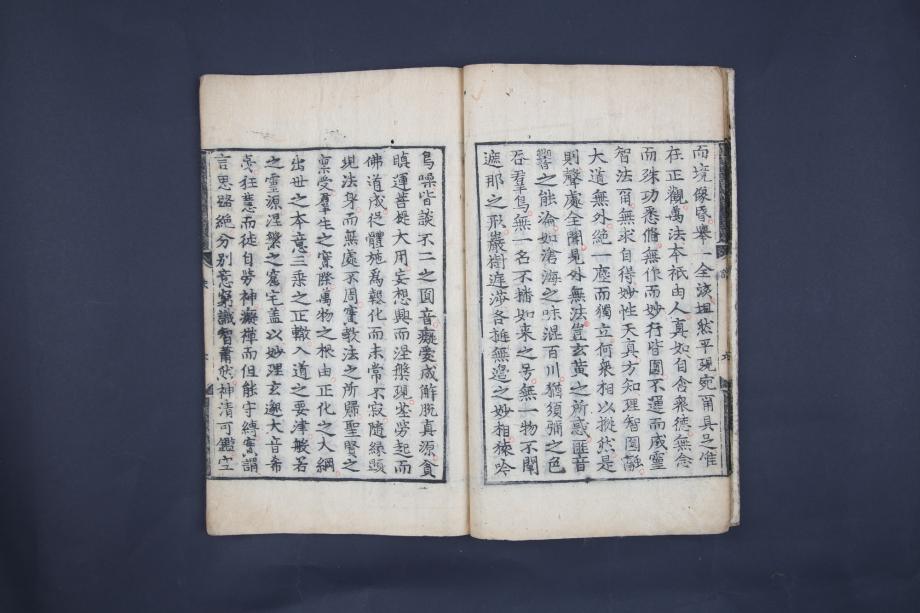 而境像昬舉一全該坦然平現宛爾具足唯
在正觀萬法本祇由人真如自含衆德無念
而殊功悉備無作而妙行皆圓不運而成靈
智法爾無求自得妙性天真方知理智圓融
大道無外絶一塵而獨立何衆相以摐然是
則聲處全聞見外無法豈玄黃之所惑匪音
響之能淪如滄海之味混百川猶須彌之色
吞羣鳥無一名不播如來之号無一物不闡
遮那之形巖樹庭莎各挺無邊之妙相猿吟
鳥噪皆談不二之圓音癡愛成解脫真源貪
瞋運菩提大用妄想興而涅槃現塵勞起而
佛道成從體施爲報化而未常不寂隨緣顯
現法身而無處不周實教法之所歸聖賢之
稟受羣生之實際萬物之根由正化之大綱
出世之本意三乘之正轍入道之要津般若
之靈源涅槃之窟宅盖以妙理玄邈大音希
聲狂慧而徒自勞神癡禪而但能守縛實謂
言思路絶分別意窮識智蕭然神清可鑑空